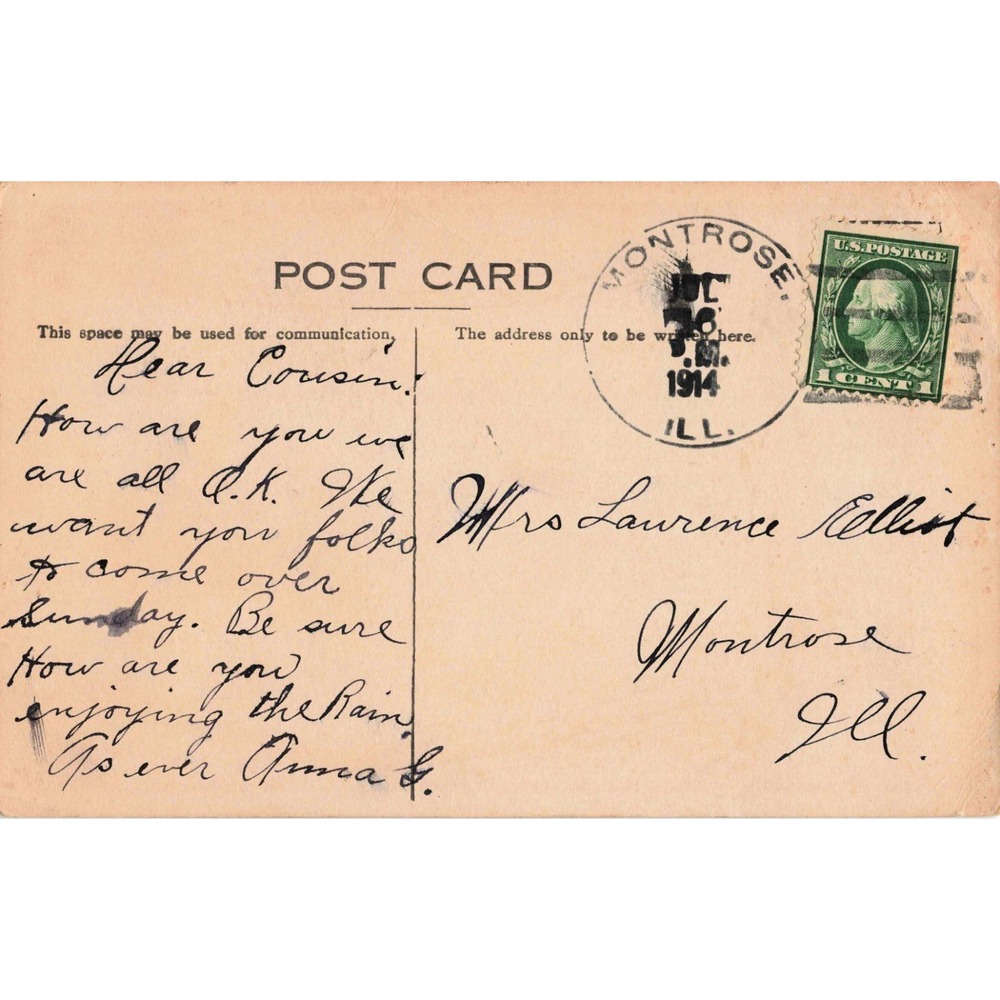 POST CARD
This space may be used for communication,
The address only to be written here.
MONTROSE,
JUL
P.M.
1914
ILL.
U.S. POSTAGE
1 CENT 1
Dear Cousin:
How are you we
are all O.K. We
want you folks
to come over
Sunday. Be sure
How are you
enjoying the Rain.
As ever Anna G.
Mrs Lawrence Elliot
Montrose
Ill.